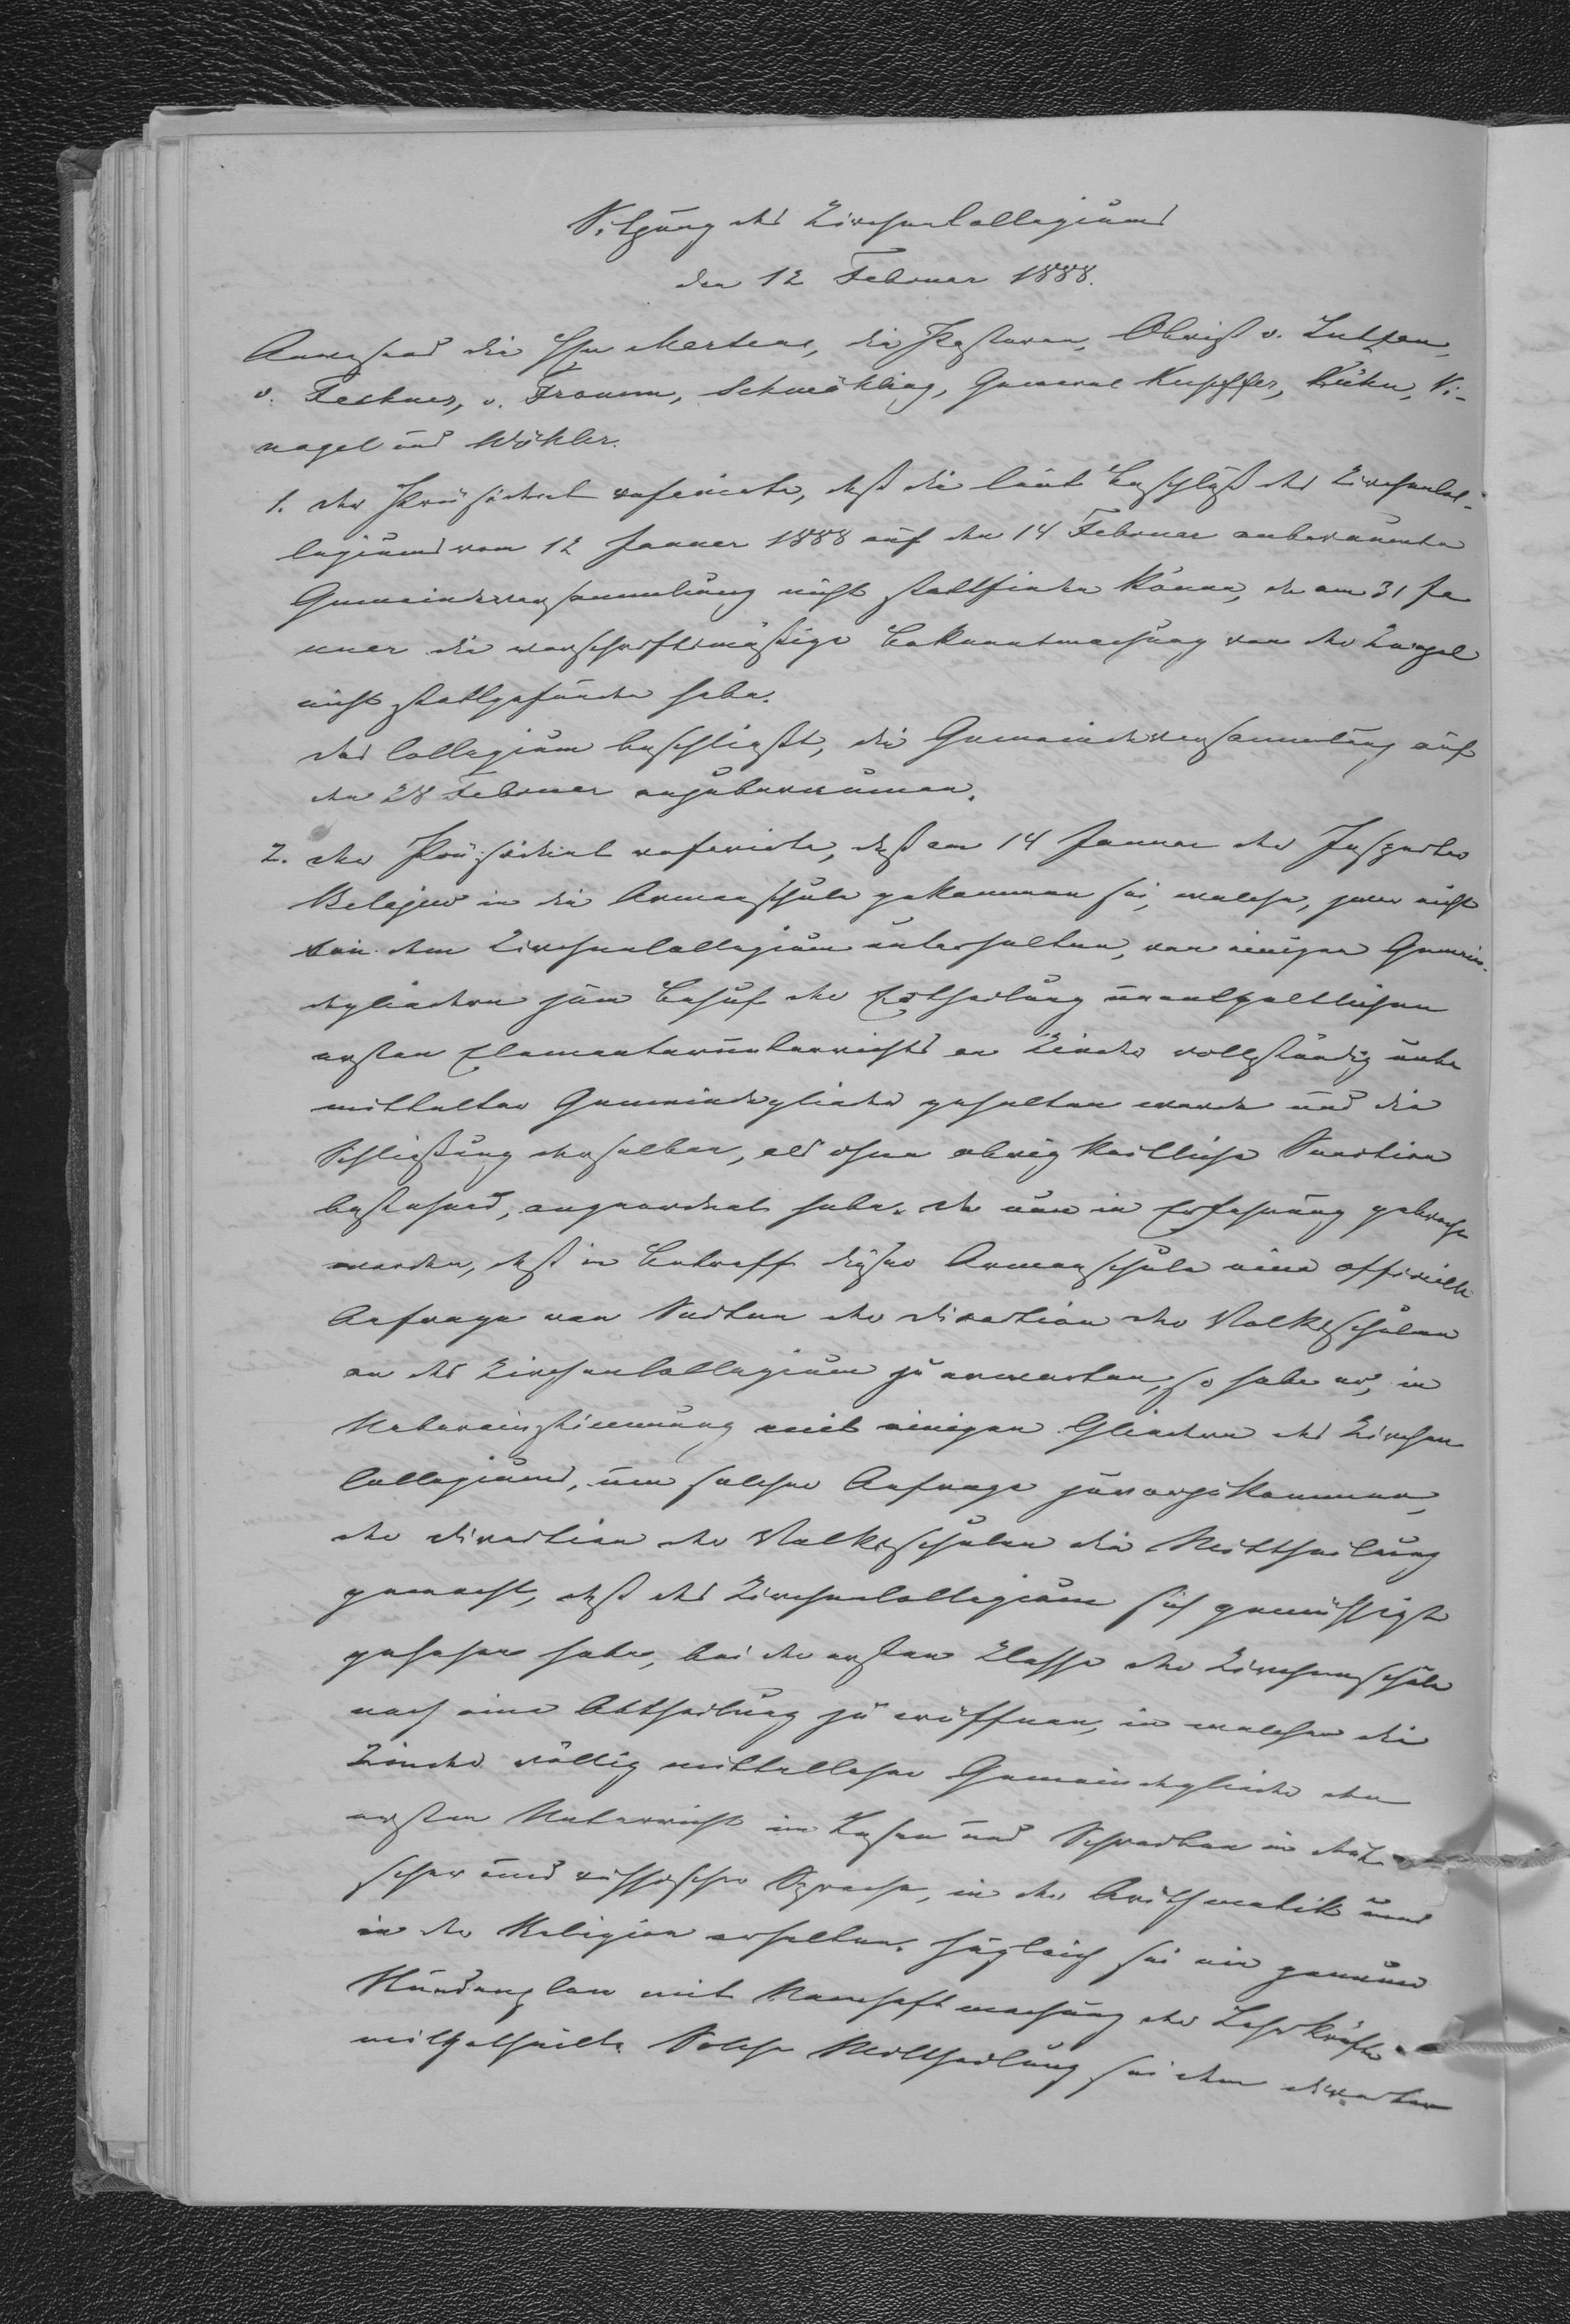 Sitzung des Kirchencollegiums
den 12 Februar 1888.
Anwesend die Hhrn Mertens, die Pastoren, Obrist v. Lutzau,
v. Fechner, v. Fromm, Schmähling, General Kupffer, Kühn, Vi-
nagel und Wöhler.
1. Der Präsident referirte, daß die laut Beschluß des Kirchencol-
legiums vom 12 Januar 1888 auf den 14 Februar anberaumte
Gemeindeversammlung nicht stattfinden könne, da am 31 Ja
nuar die vorschriftsmäßige Bekanntmachung von der Kanzel
nicht stattgefunden habe.
Das Collegium beschließt, die Gemeindeversammlung auf
den 28 Februar anzuberaumen.
2. Der Präsident referirte, daß am 14 Januar der Inspector
Belajew in die Armenschule gekommen sei, welche, zwar nicht
von dem Kirchencollegium unterhalten, von einigen Gemein-
degliedern zum Behuf der Ertheilung unentgeltlichen
ersten Elementarunterrichts an Kinder vollständig unbe
mittelter Gemeindeglieder gehalten werde und die
Schließung derselben, als ohne obrigkeitliche Sanction
bestehend, angeordnet habe. Da nun in Erfahrung gebracht
worden, daß in Betreff dieser Armenschule eine officielle
Anfrage von Seiten der Direction der Volksschulen
an das Kirchencollegium zu erwarten, so habe er, in
Uebereinstimmung mit einigen Gliedern des Kirchen
collegiums, um solcher Anfrage zuvorzukommen,
der Direction der Volksschulen die Mittheilung
gemacht, daß das Kirchencollegium sich gemüssigt
gesehen habe, bei der ersten Klasse der Kirchenschule
noch eine Abtheilung zu eröffnen, in welcher die
Kinder völlig mittelloser Gemeindeglieder den
ersten Unterricht im Lesen und Schreiben in deut
scher und russischer Sprache, in der Arithmetik und
in der Religion erhalten. Zugleich sei ein genauer
Stundenplan mit Namhaftmachung der Lehrkräfte
mitgetheilt. Solche Mittheilung sei dem Director